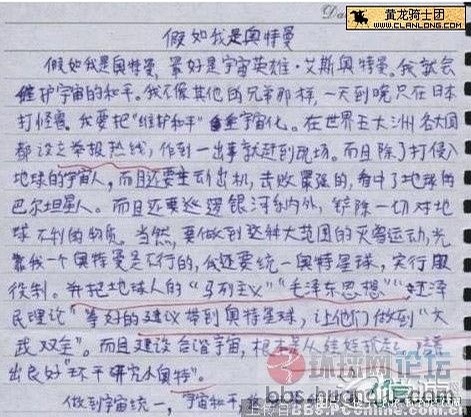 黄龙骑士团
WWW.CLANLONG.COM
Da
假如我是奥特曼
假如我是奥特曼,最好是宇宙英雄·艾斯奥特曼。我就会
维护宇宙的和平。我不像其他的兄弟那样,一天到晚只在日本
打怪兽。我要把“维护和平”宇宙化。在世界五大洲各大国
都设立举报热线,作到一出事就赶到现场。而且除了打侵入
地球的宇宙人,而且还要主动出机,击败最强的,看中了地球的
巴尔坦星人。而且还要巡逻银河系内外,铲除一切对地
球不利的物质。当然,要做到这种大范围的灭害运动,光
靠我一个奥特曼是不行的,我还要统一奥特星球,实行服
役制。并把地球人的“马列主义”“毛泽东思想”
民理论”等好的建议带到奥特星球,让他们做到“文
武双全”。而且建设合谐宇宙,根本是从娃娃抓起,
出良好“环干研究小奥特”。
做到宇宙统一,宇宙和平,